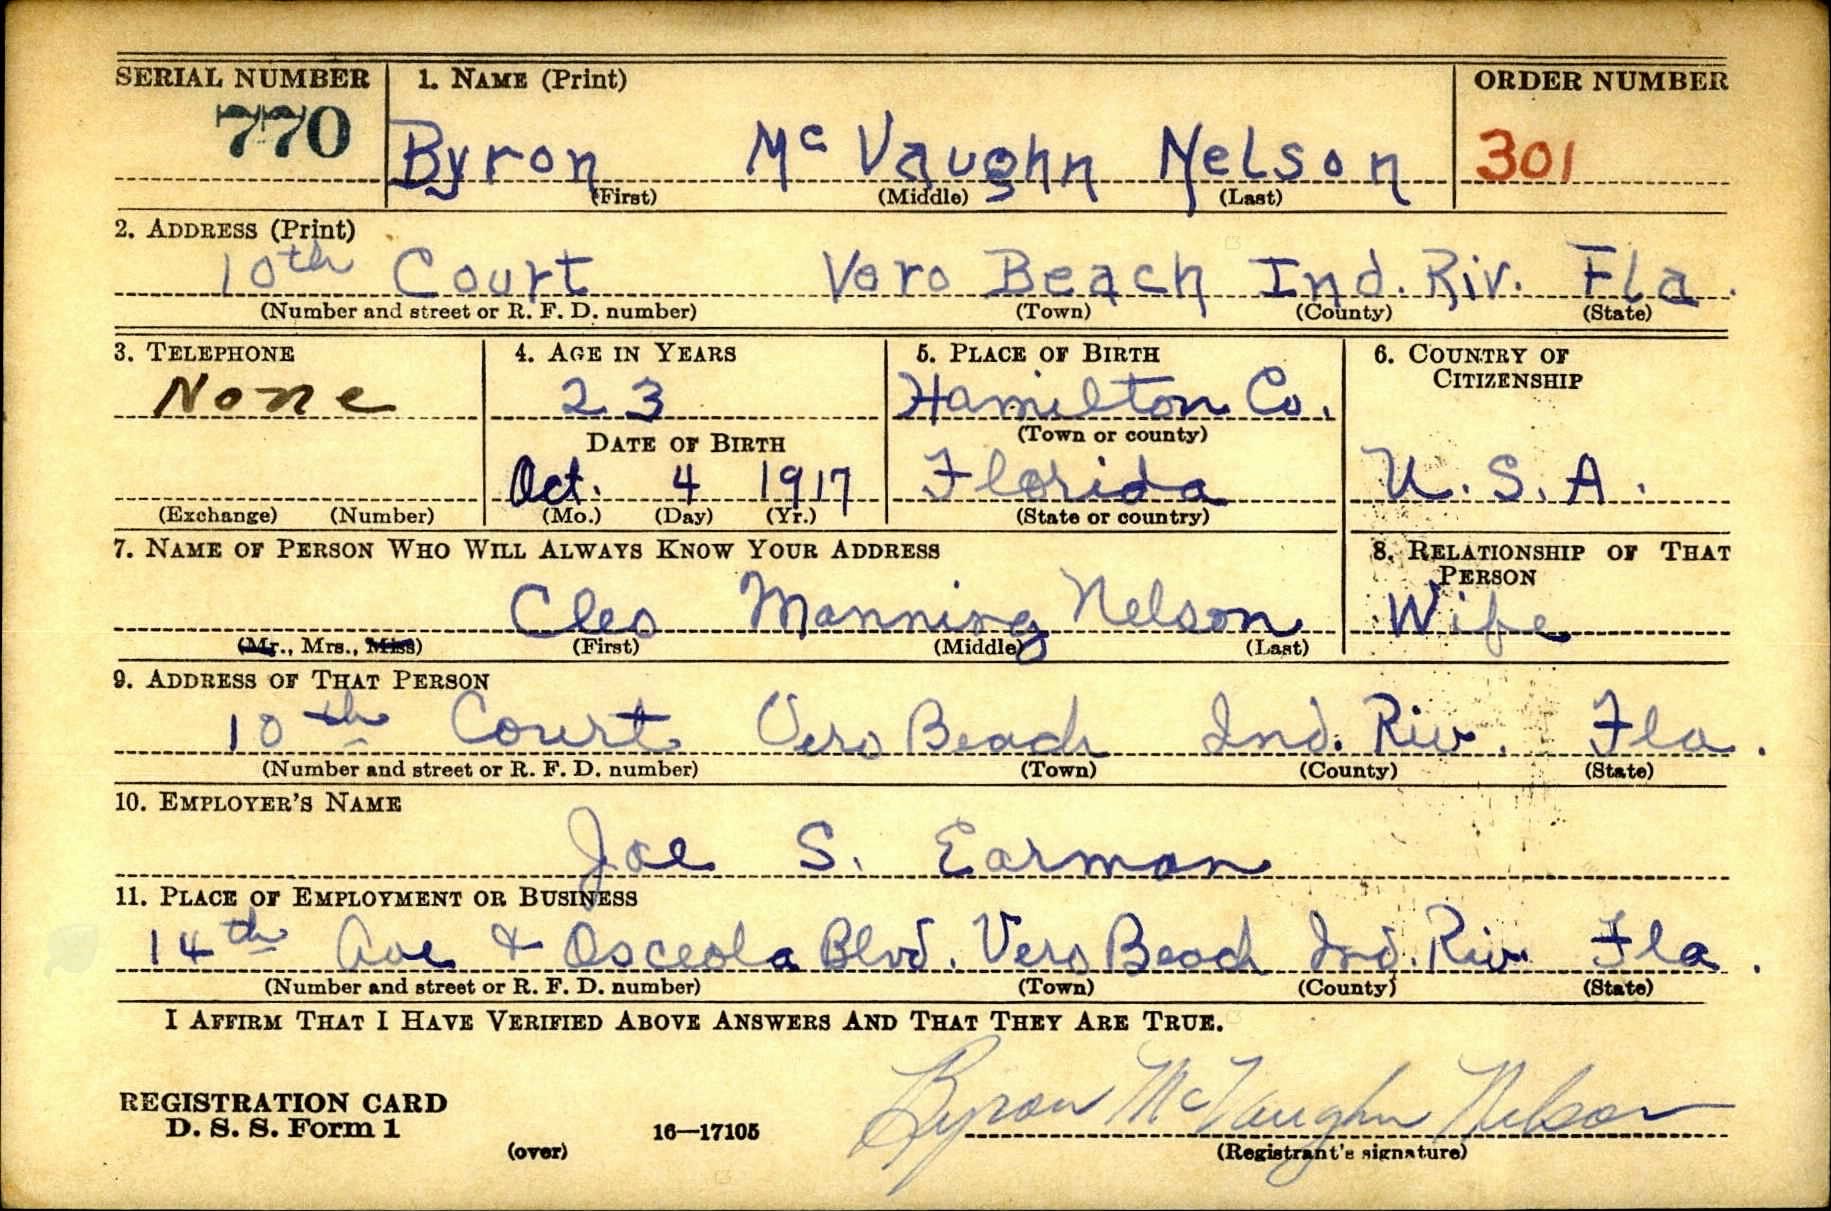 SERIAL NUMBER 1. NAME (Print) ORDER NUMBER
770 Byron Mc Vaughn Nelson 301
(First) (Middle) (Last)
2. ADDRESS (Print)
10th Court Vero Beach Ind. Riv. Fla.
(Number and street or R. F. D. number) (Town) (County) (State)
3. TELEPHONE 4. AGE IN YEARS 5. PLACE OF BIRTH 6. COUNTRY OF CITIZENSHIP
None 23 Hamilton Co.
(Town or county)
DATE OF BIRTH
Oct. 4 1917 Florida U. S. A.
(Exchange) (Number) (Mo.) (Day) (Yr.) (State or country)
7. NAME OF PERSON WHO WILL ALWAYS KNOW YOUR ADDRESS 8. RELATIONSHIP OF THAT PERSON
Cleo Manning Nelson Wife
(Mr., Mrs., Miss) (First) (Middle) (Last)
9. ADDRESS OF THAT PERSON
10th Court Vero Beach Ind. Riv. Fla.
(Number and street or R. F. D. number) (Town) (County) (State)
10. EMPLOYER'S NAME
Joe S. Earman
11. PLACE OF EMPLOYMENT OR BUSINESS
14th Ave & Osceola Blvd. Vero Beach Ind. Riv. Fla.
(Number and street or R. F. D. number) (Town) (County) (State)
I AFFIRM THAT I HAVE VERIFIED ABOVE ANSWERS AND THAT THEY ARE TRUE.
Byron McVaughn Nelson
REGISTRATION CARD
D. S. S. Form 1 16—17105
(over) (Registrant's signature)